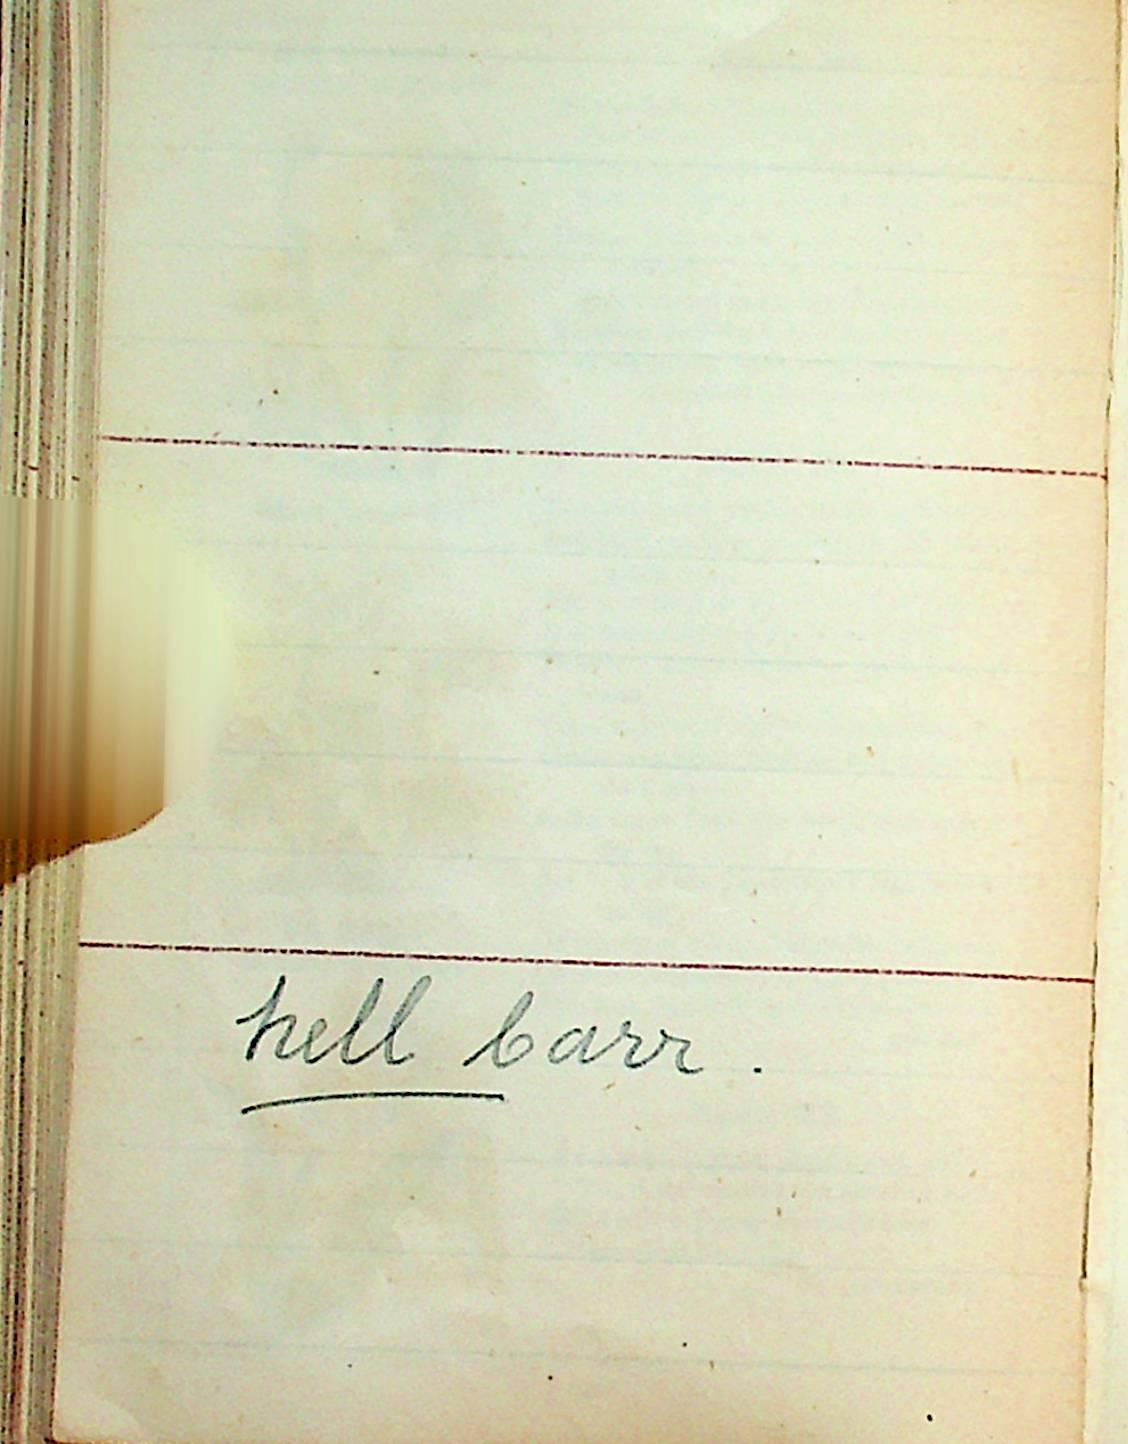 hell barr.